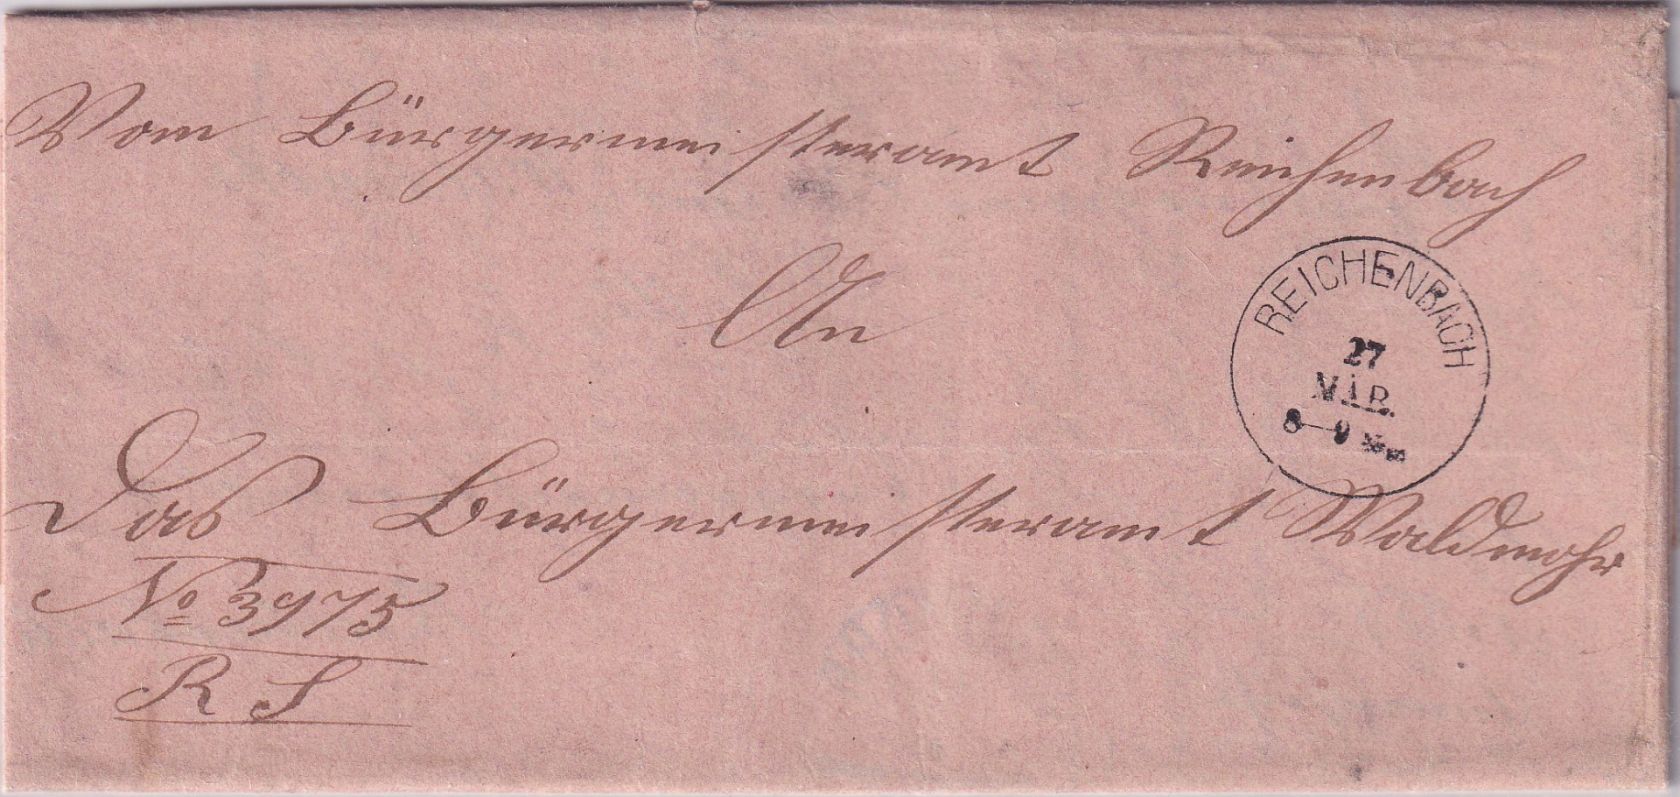 Vom Bürgermeisteramt Reichenbach
An
REICHENBACH
27
MÄR.
8—9
Das Bürgermeisteramt Waldmohr
No 3975
R S